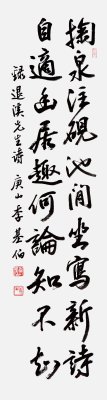 掬泉注硯池閒坐寫新詩
自適幽居趣何論知不知
錄退溪先生詩 庚山 李基伯